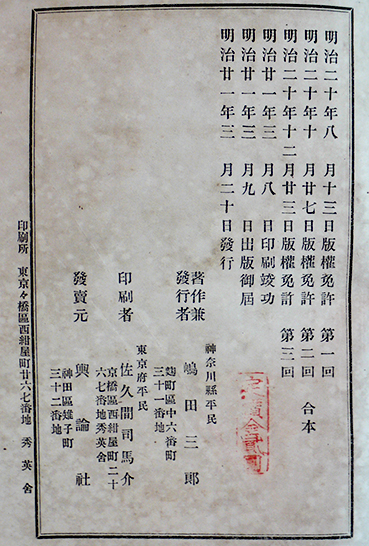 明治二十年八月十三日版權免許 第一回
明治二十年十月廿七日版權免許 第二回 合本
明治二十年十二月廿三日版權免許 第三回
明治廿一年三月八日印刷竣功
明治廿一年三月九日出版御届
明治廿一年三月二十日發行
神奈川縣平民
著作兼
發行者 嶋田三郎
麹町區中六番町
三十一番地
東京府平民
印刷者 佐久間司馬介
京橋區西紺屋町二十
六七番地秀英舎
發賣元 輿論社
神田區雉子町
三十二番地
印刷所 東京々橋區西紺屋町廿六七番地 秀英舎